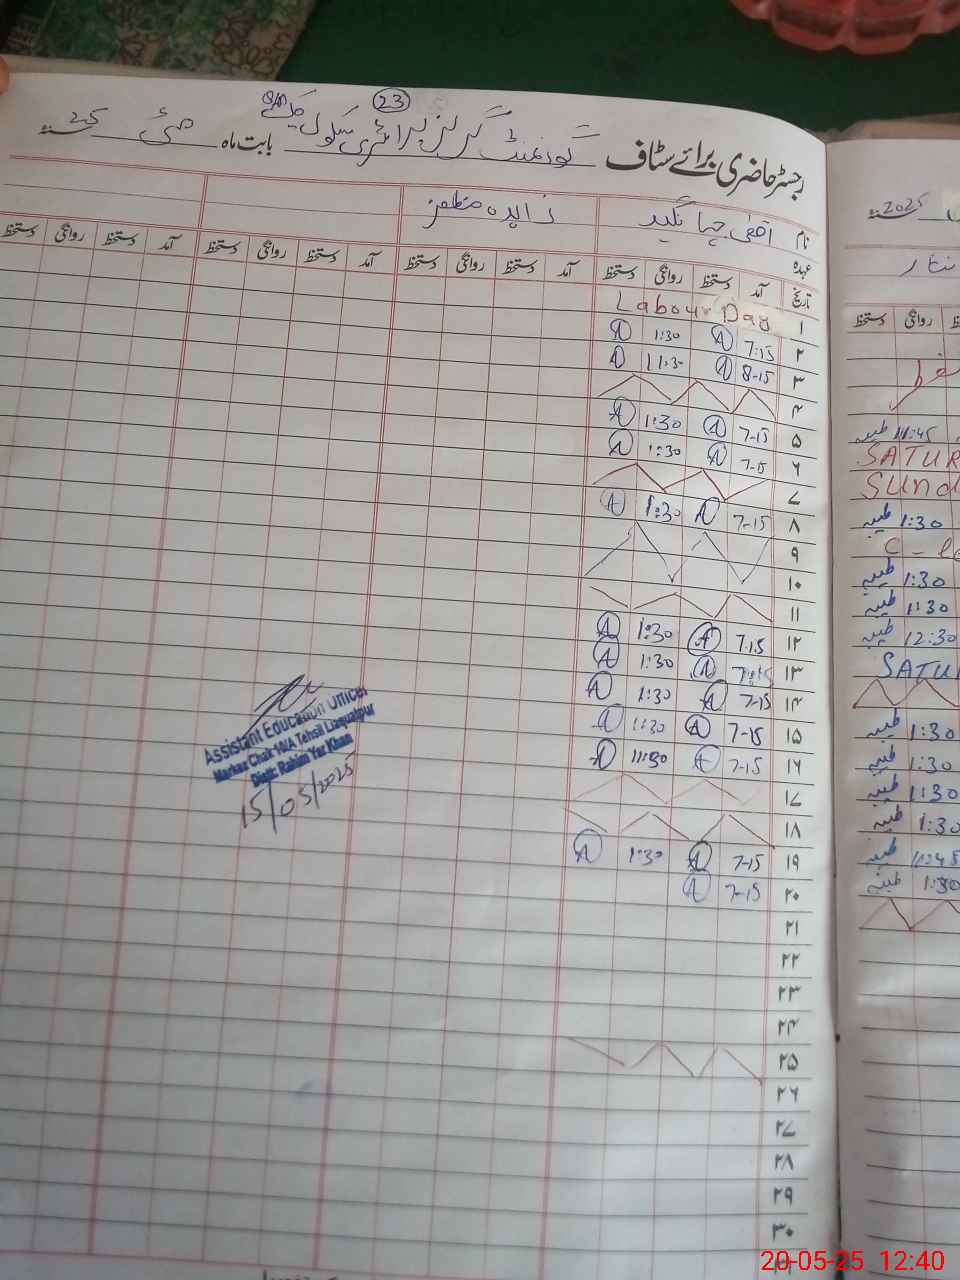 23
رجسٹر حاضری برائے سٹاف گورنمنٹ گرلز پرائمری سکول چک بابت ماہ مئی سنہ
نام اقصیٰ جہانگیر زاہدہ مظفر
عہدہ
تاریخ آمد دستخط روانگی دستخط آمد دستخط روانگی دستخط آمد دستخط روانگی دستخط آمد دستخط روانگی دستخط
۱ Labour Day
۲ 7:15 A 1:30 A
۳ 8-15 A 11:30 A
۴
۵ 7-15 A 1:30 A
۶ 7-15 A 1:30 A
۷
۸ 7-15 A 1:30 A
۹
۱۰
۱۱
۱۲ 7:15 A 1:30 A
۱۳ A 1:30 A
۱۴ 7-15 A 1:30 A
۱۵ 7-15 A 1:30 A
۱۶ 7-15 A 11:30 A
۱۷
۱۸
۱۹ 7-15 A 1:30 A
۲۰ 7-15 A
۲۱
۲۲
۲۳
۲۴
۲۵
۲۶
۲۷
۲۸
۲۹
۳۰
Assistant Education Officer
Markaz Chak 14/A Tehsil Liaquatpur
Distt: Rahim Yar Khan
15/05/2025
سنہ 2025
دستخط روانگی
طیبہ 11:45
SATUR
Sund
طیبہ 1:30
طیبہ 1:30
طیبہ 1:30
طیبہ 12:30
SATU
طیبہ 1:30
طیبہ 1:30
طیبہ 1:30
طیبہ 1:30
طیبہ 11:45
طیبہ 1:30
20-05-25 12:40